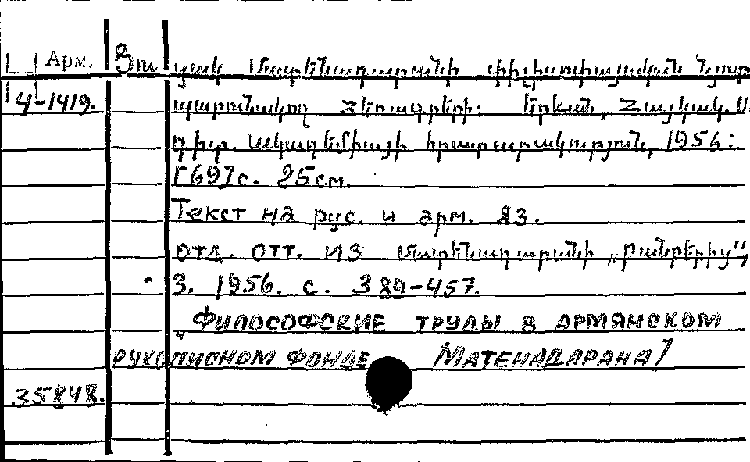 Арм. Ցուցակ Մատենադարանի փիլիսոփայական նյութ
4-1419. պարունակող ձեռագրերի: Երևան, Հայկական Ս
գիտ. ակադեմիայի հրատարակություն, 1956:
[69] с. 25 см.
Текст на рус. и арм. яз.
отд. отт. из Մատենադարանի „Բանբերից",
3. 1956. с. 389-457.
Философские труды в армянском
рукописном фонде Матенадарана]
35848.